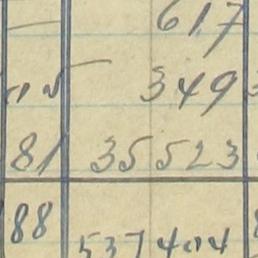 617
349
81 35523
88 537404